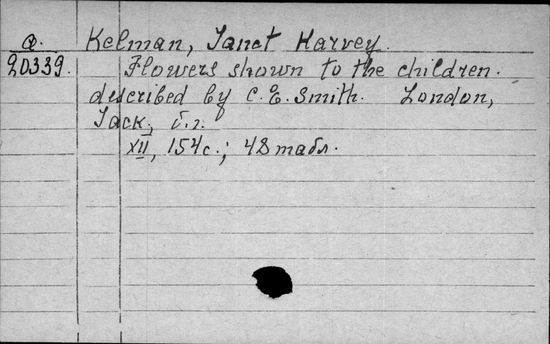 Q. Kelman, Janet Harvey.
20339. Flowers shown to the children.
described by C. E. Smith. London,
Jack, б.г.
XII, 154 с.; 48 табл.